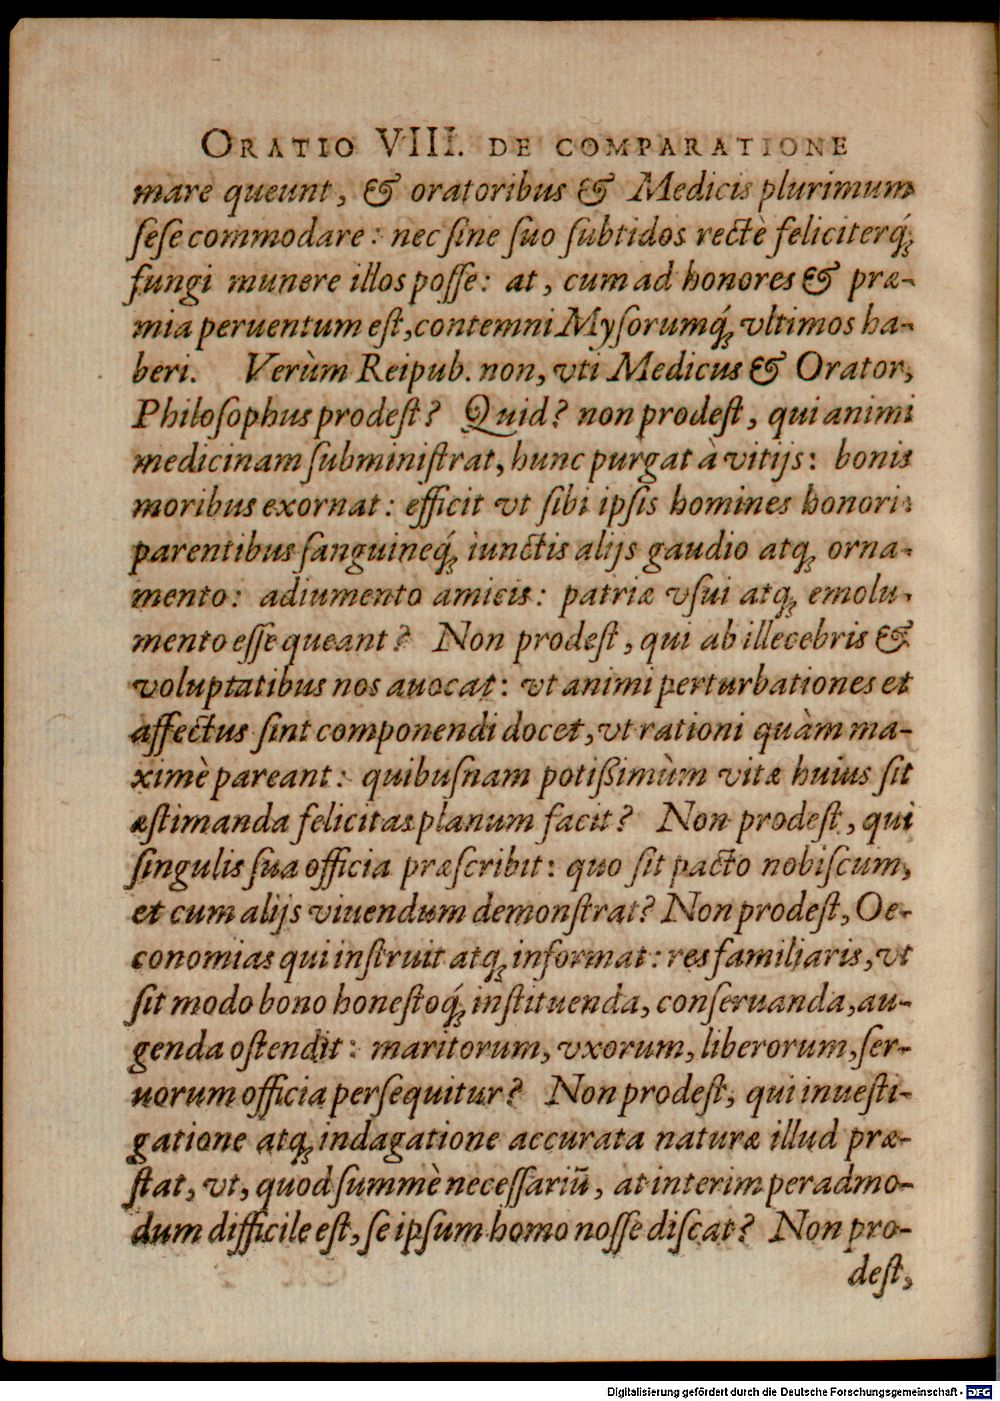 ORATIO VIII. DE COMPARATIONE
mare queunt, & oratoribus & Medicis plurimum
sese commodare: nec sine suo subtidos rectè feliciterq́;
fungi munere illos posse: at, cum ad honores & præ-
mia peruentum est, contemni Mysorumq́; vltimos ha-
beri. Verùm Reipub. non, vti Medicus & Orator,
Philosophus prodest? Quid? non prodest, qui animi
medicinam subministrat, hunc purgat à vitijs: bonis
moribus exornat: efficit vt sibi ipsis homines honori:
parentibus sanguineq́; iunctis alijs gaudio atq; orna-
mento: adiumento amicis: patriæ vsui atq; emolu-
mento esse queant? Non prodest, qui ab illecebris &
voluptatibus nos auocat: vt animi perturbationes et
affectus sint componendi docet, vt rationi quàm ma-
ximè pareant: quibusnam potißimùm vitæ huius sit
æstimanda felicitas planum facit? Non prodest, qui
singulis sua officia præscribit: quo sit pacto nobiscum,
et cum alijs viuendum demonstrat? Non prodest, Oe-
conomias qui instruit atq; informat: res familiaris, vt
sit modo bono honestoq́; instituenda, conseruanda, au-
genda ostendit: maritorum, vxorum, liberorum, ser-
uorum officia persequitur? Non prodest, qui inuesti-
gatione atq; indagatione accurata naturæ illud præ-
stat, vt, quod summè necessariū, at interim peradmo-
dum difficile est, se ipsum homo nosse discat? Non pro-
dest,
Digitalisierung gefördert durch die Deutsche Forschungsgemeinschaft - DFG